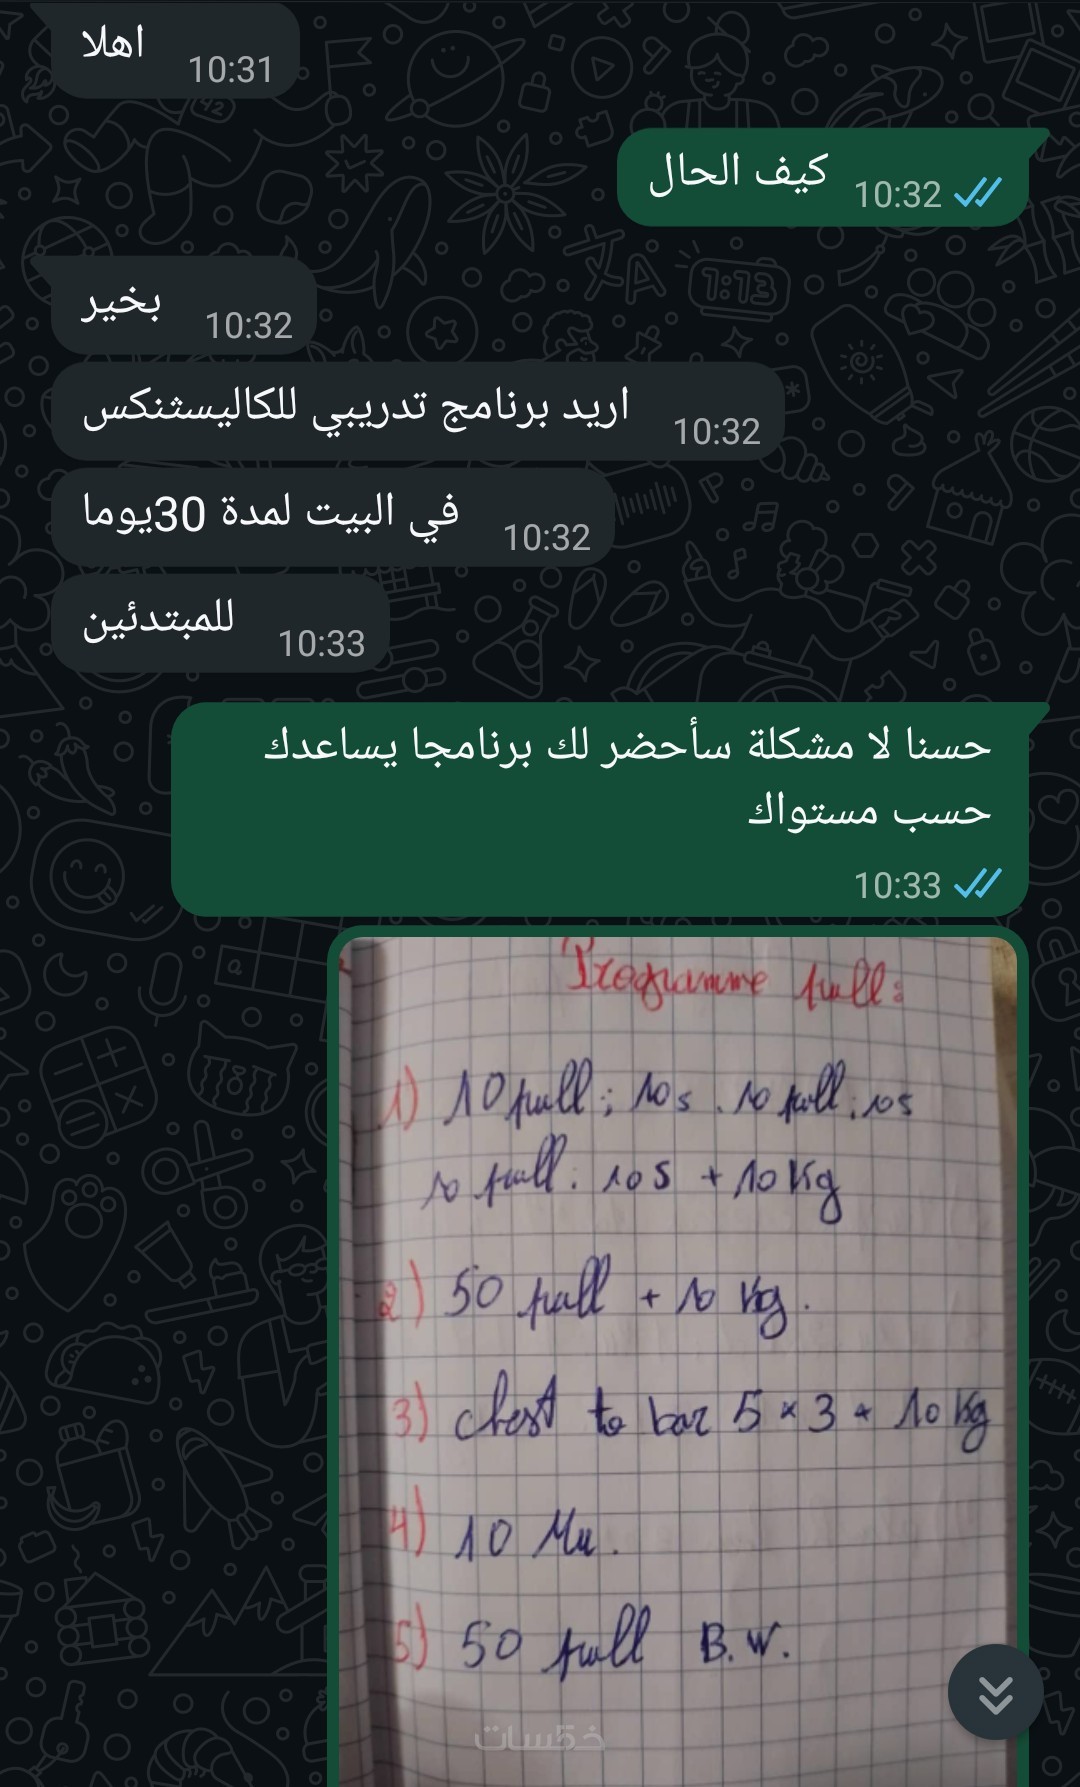 اهلا
10:31
كيف الحال
10:32
بخير
10:32
اريد برنامج تدريبي للكاليسثنكس
10:32
في البيت لمدة 30يوما
10:32
للمبتدئين
10:33
حسنا لا مشكلة سأحضر لك برنامجا يساعدك
حسب مستواك
10:33
Programme pull:
1) 10 pull; 10s. 10 pull; 10s
10 pull. 10s + 10 Kg
2) 50 pull + 10 Kg.
3) chest to bar 5 × 3 + 10 Kg
4) 10 Mu.
5) 50 pull B.W.
خمسات